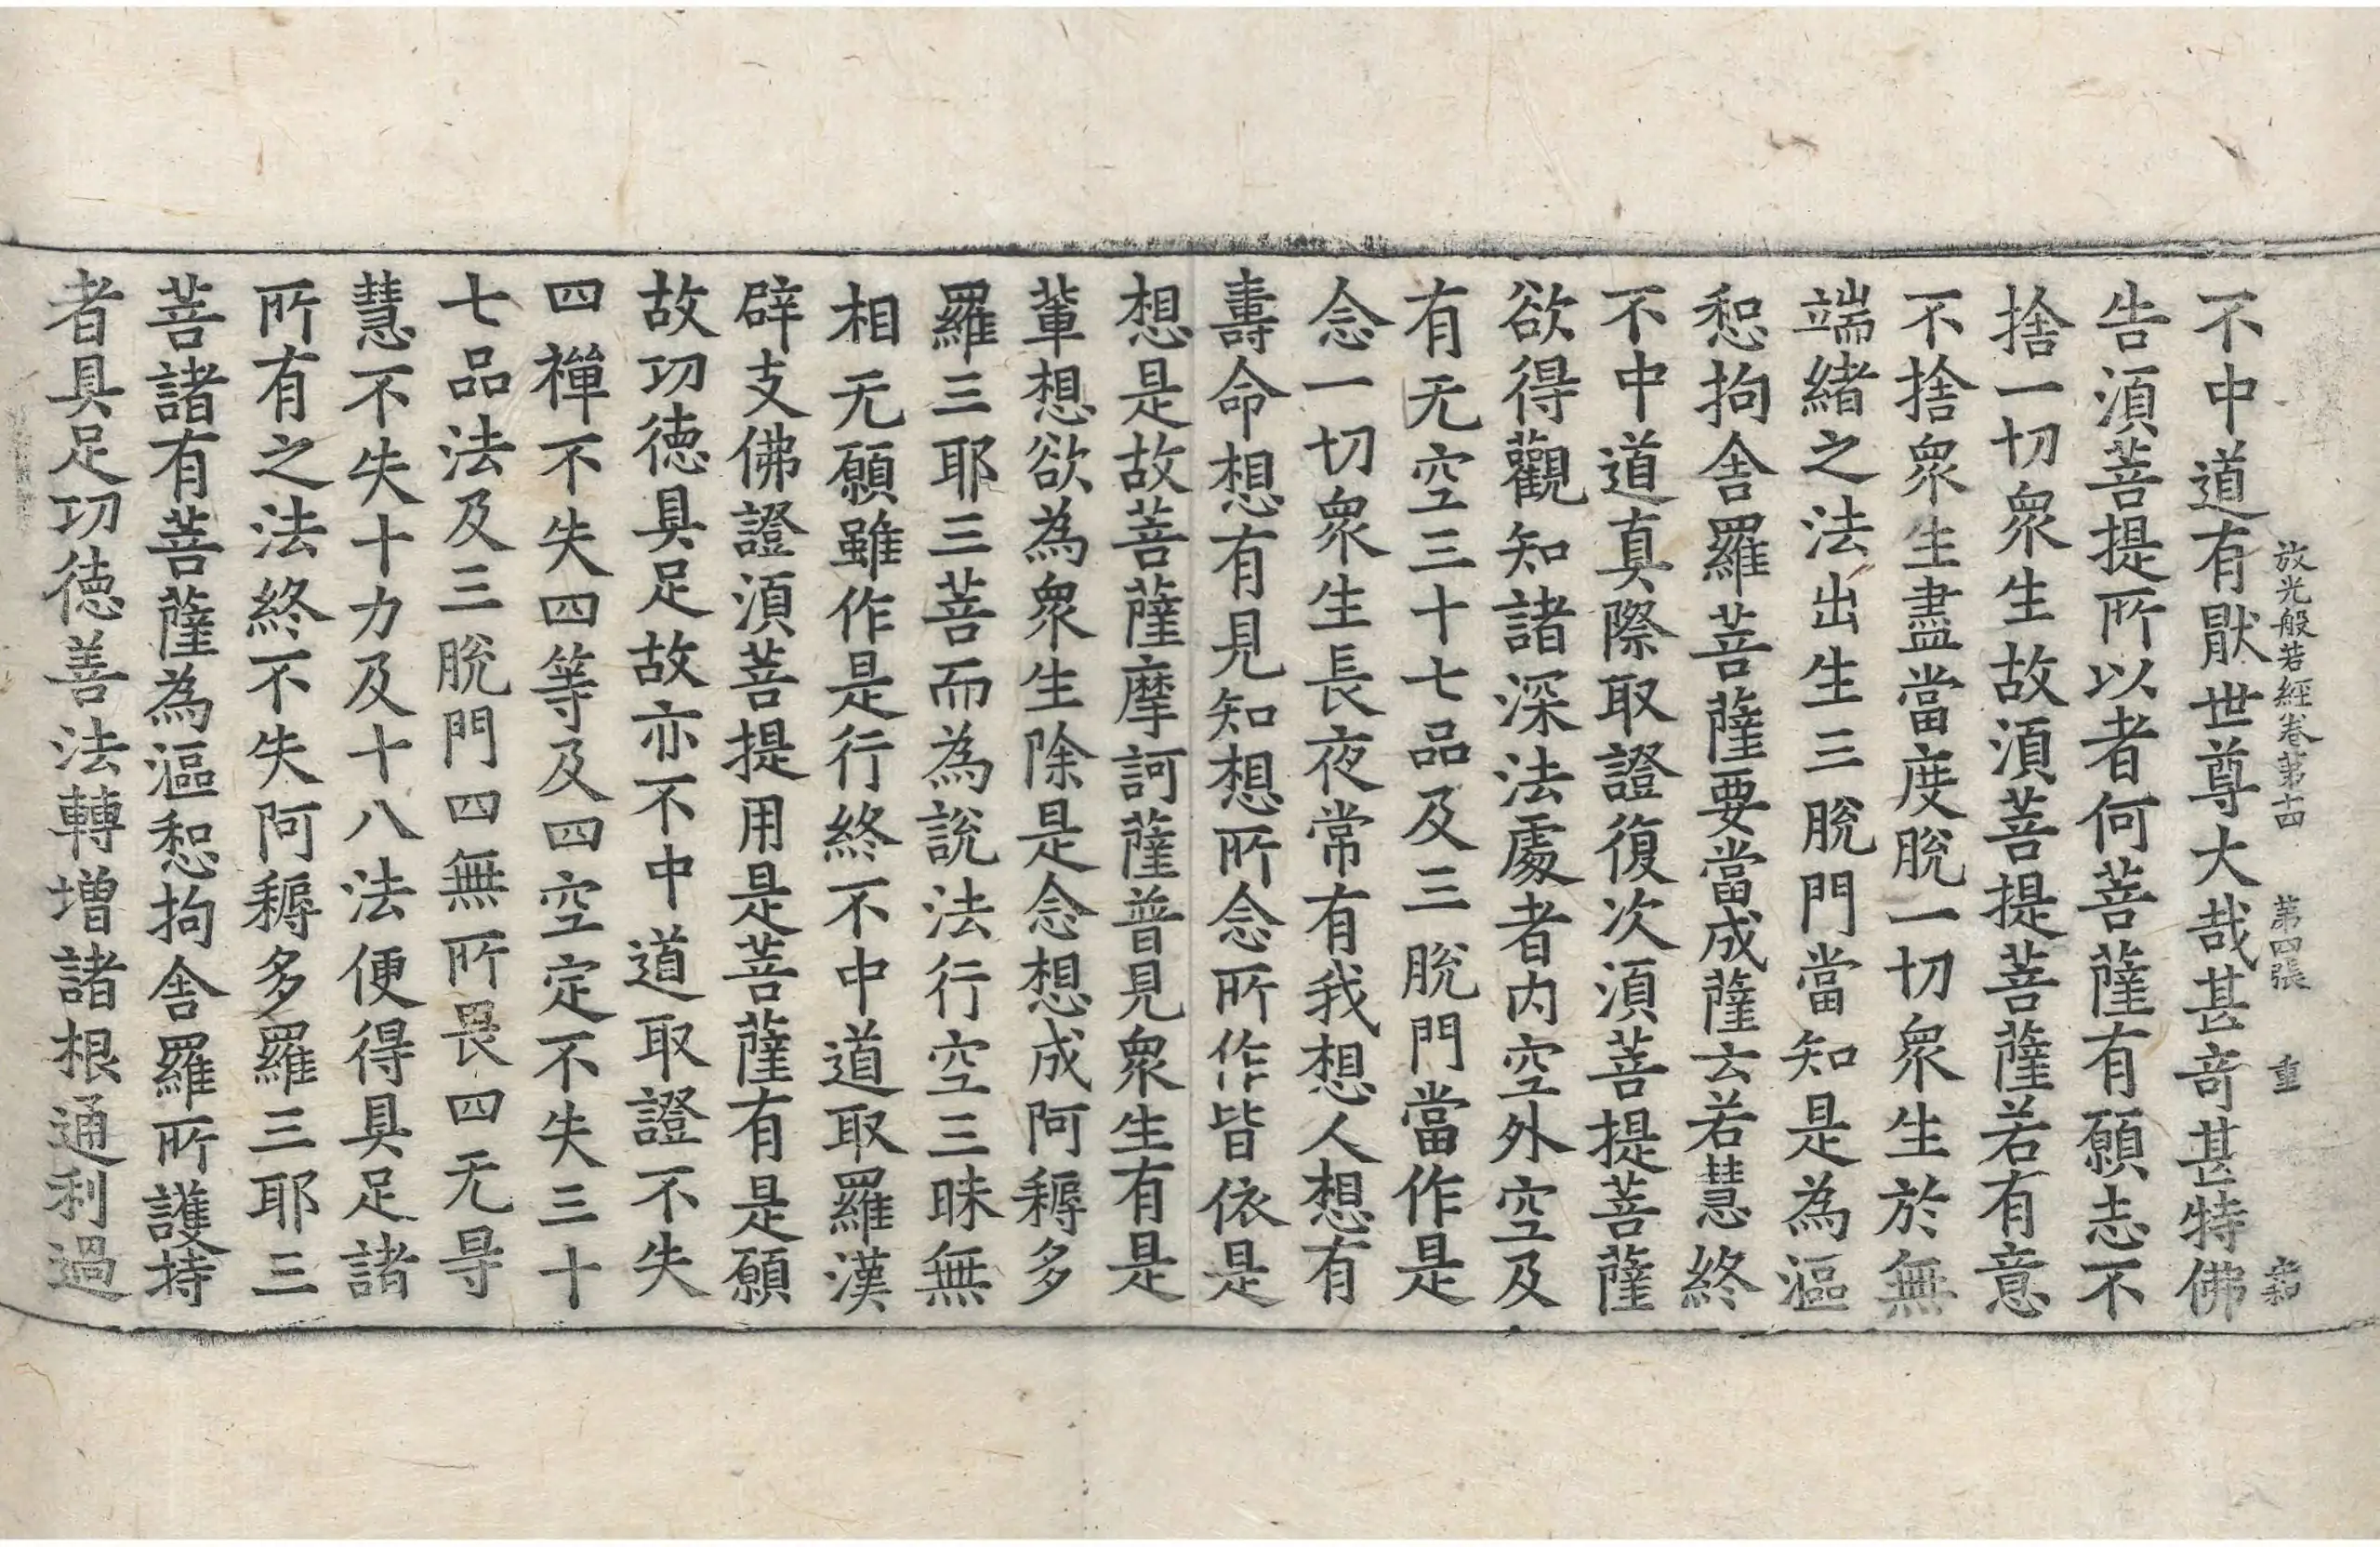 放光般若經卷第十四 第四張 重
不中道有猒世尊大哉甚奇甚特佛
告湏菩提所以者何菩薩有願志不
捨一切衆生故湏菩提菩薩若有意
不捨衆生盡當度脫一切衆生於無
端緒之法出生三脫門當知是為漚
惒拘舍羅菩薩要當成薩云若慧終
不中道真際取證復次湏菩提菩薩
欲得觀知諸深法處者内空外空及
有无空三十七品及三脫門當作是
念一切衆生長夜常有我想人想有
壽命想有見知想所念所作皆依是
想是故菩薩摩訶薩普見衆生有是
輩想欲為衆生除是念想成阿耨多
羅三耶三菩而為說法行空三昧無
相无願雖作是行終不中道取羅漢
辟支佛證湏菩提用是菩薩有是願
故功德具足故亦不中道取證不失
四禪不失四等及四空定不失三十
七品法及三脫門四無所畏四无㝵
慧不失十力及十八法便得具足諸
所有之法終不失阿耨多羅三耶三
菩諸有菩薩為漚惒拘舍羅所護持
者具足功德善法轉增諸根通利過